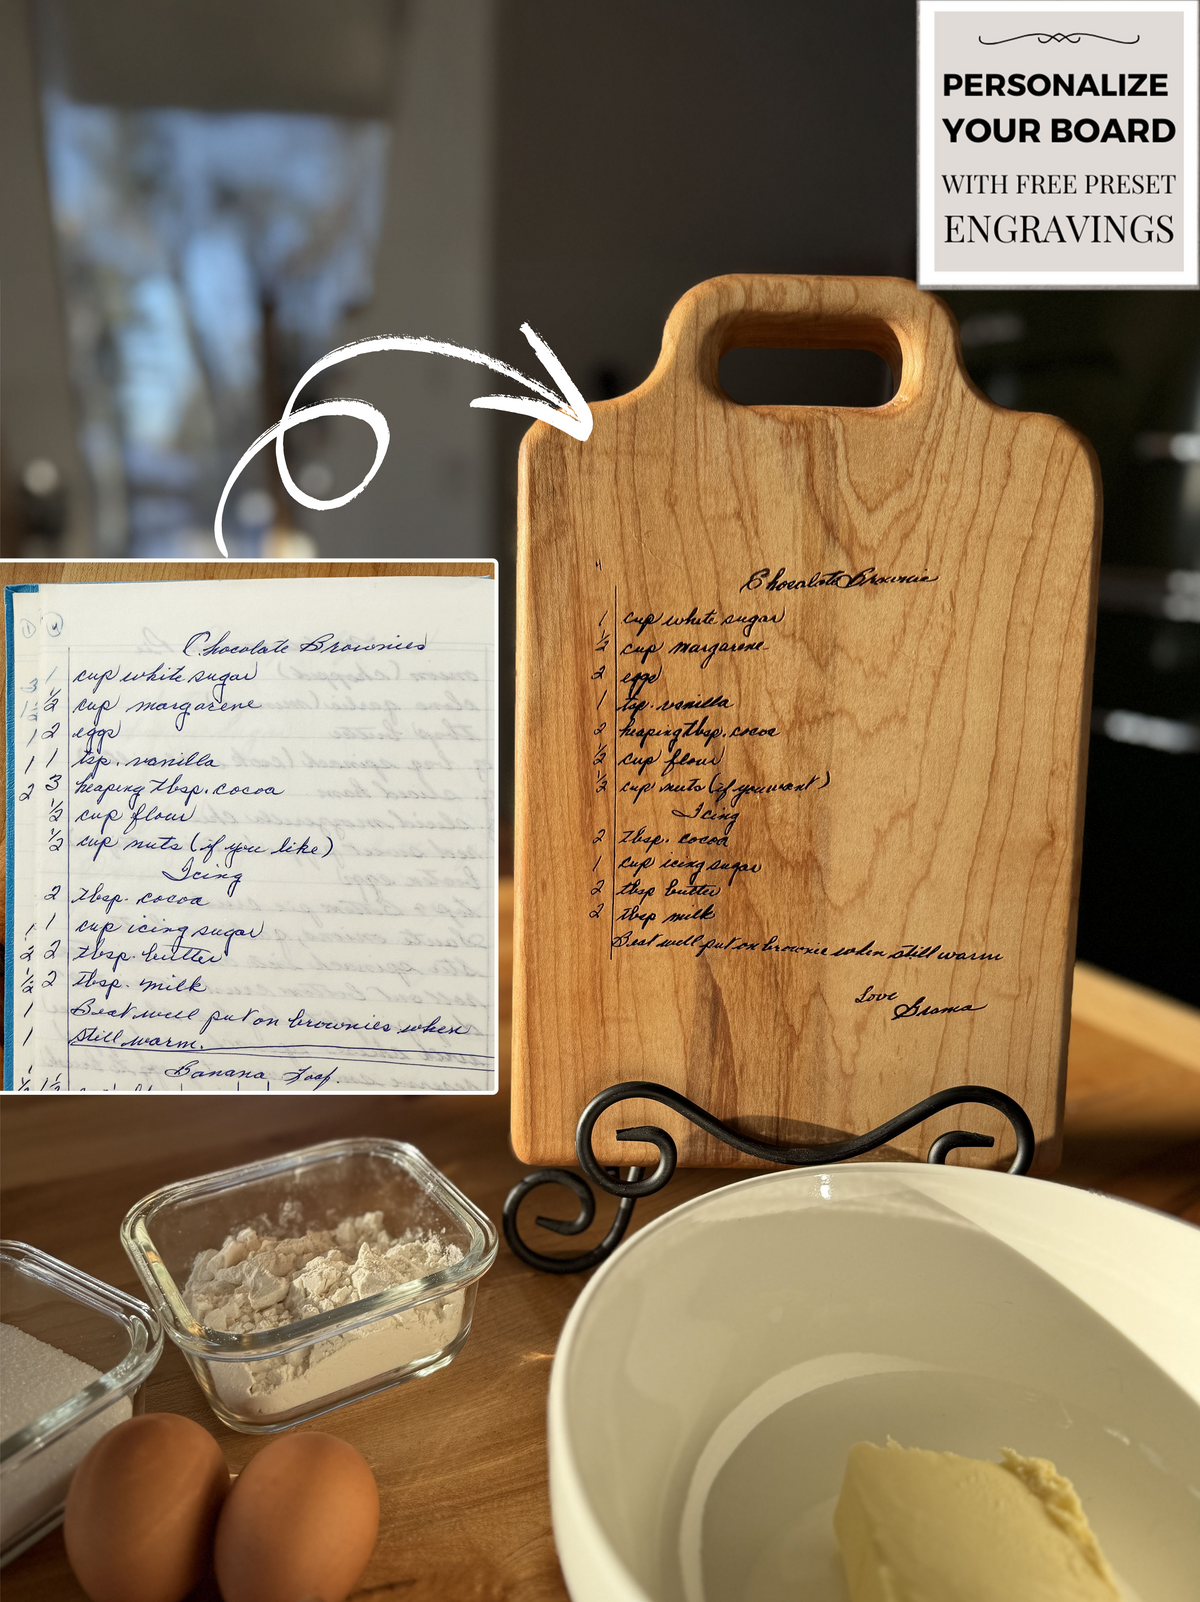 PERSONALIZE
YOUR BOARD
WITH FREE PRESET
ENGRAVINGS
Chocolate Brownies
1 cup white sugar
1/2 cup margarene
2 eggs
1 tsp. vanilla
3 heaping tbsp. cocoa
1/2 cup flour
1/2 cup nuts (if you like)
Icing
2 tbsp. cocoa
1 cup icing sugar
2 tbsp. butter
2 tbsp. milk
Beat well put on brownies when
still warm.
Banana Loaf.
Chocolate Brownie
1 cup white sugar
1/2 cup margarene
2 eggs
1 tsp. vanilla
2 heaping tbsp. cocoa
1/2 cup flour
1/2 cup nuts (if you want)
Icing
2 tbsp. cocoa
1 cup icing sugar
2 tbsp butter
2 tbsp milk
Beat well put on brownie when still warm
Love
Grama